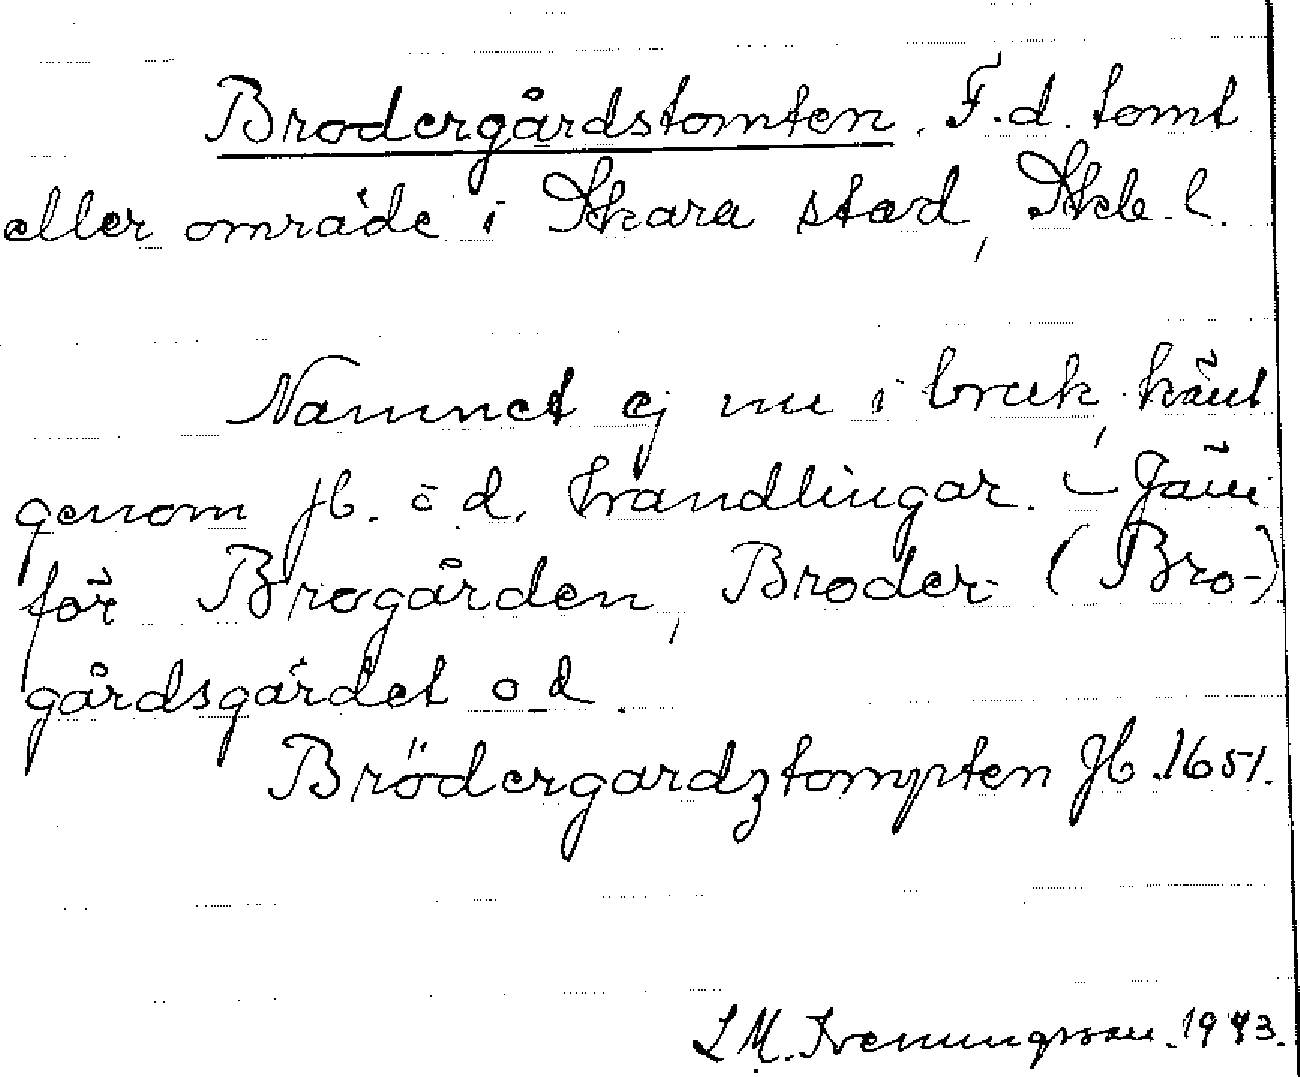 Brodergårdstomten. F.d. tomt
eller område i Skara stad, Skb. l.
Namnet ej nu i bruk, känt
genom jb. o d. handlingar. – Jäm
för Brogården, Broder- (Bro-)
gårdsgärdet o d.
Brödergardztompten Jb. 1651.
L M. Svenungsson. 1943.